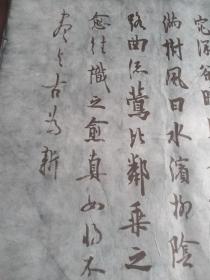 窕深谷時
滿樹風日水濱柳陰
路曲流鶯比鄰乘之
愈往識之愈真如將不
盡與古為新